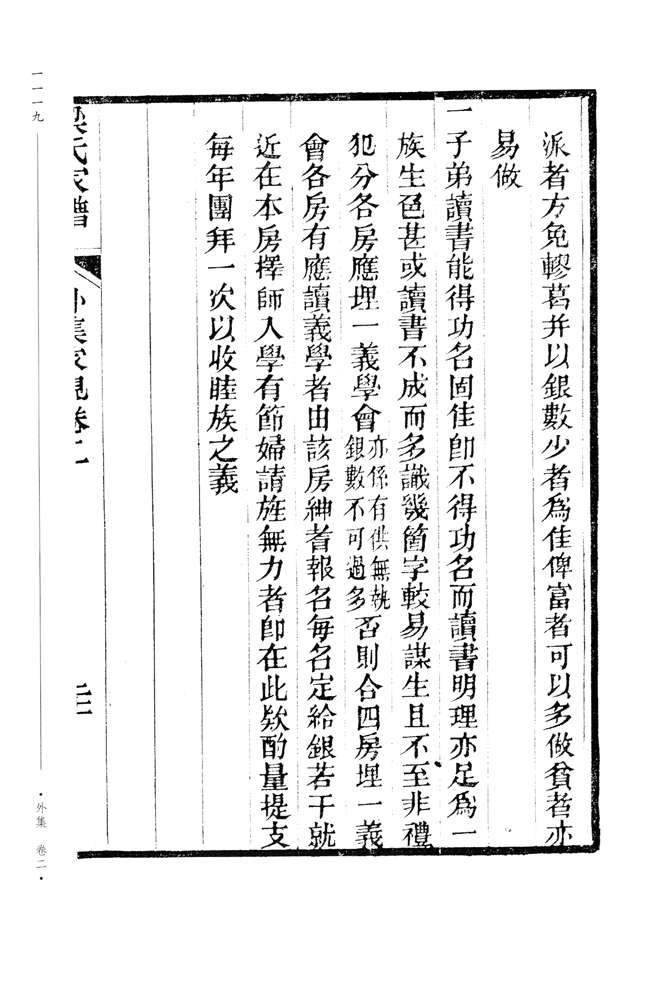 派者方免轇葛并以銀數少者爲佳俾富者可以多做貧者亦
易做
一子弟讀書能得功名固佳卽不得功名而讀書明理亦足爲一
族生色甚或讀書不成而多識幾箇字較易謀生且不至非禮
犯分各房應埋一義學會亦係有供無執銀數不可過多否則合四房埋一義
會各房有應讀義學者由該房紳耆報名每名定給銀若干就
近在本房擇師入學有節婦請旌無力者卽在此欵酌量提支
每年團拜一次以收睦族之義
氏家譜
集
卷二
一一一九
·外集 卷二·